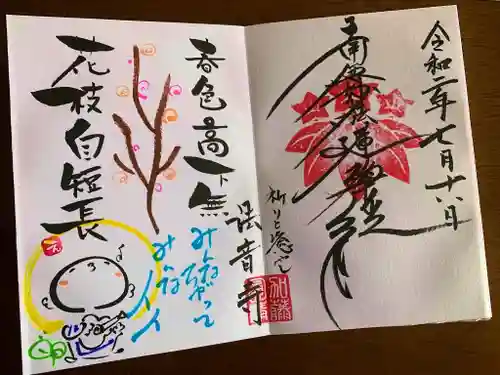 令和二年七月十八日
南無妙法蓮華経
祈りと慈定
法音寺
加藤
春色高下無
花枝自短長
みんなちがって
みんなイイ